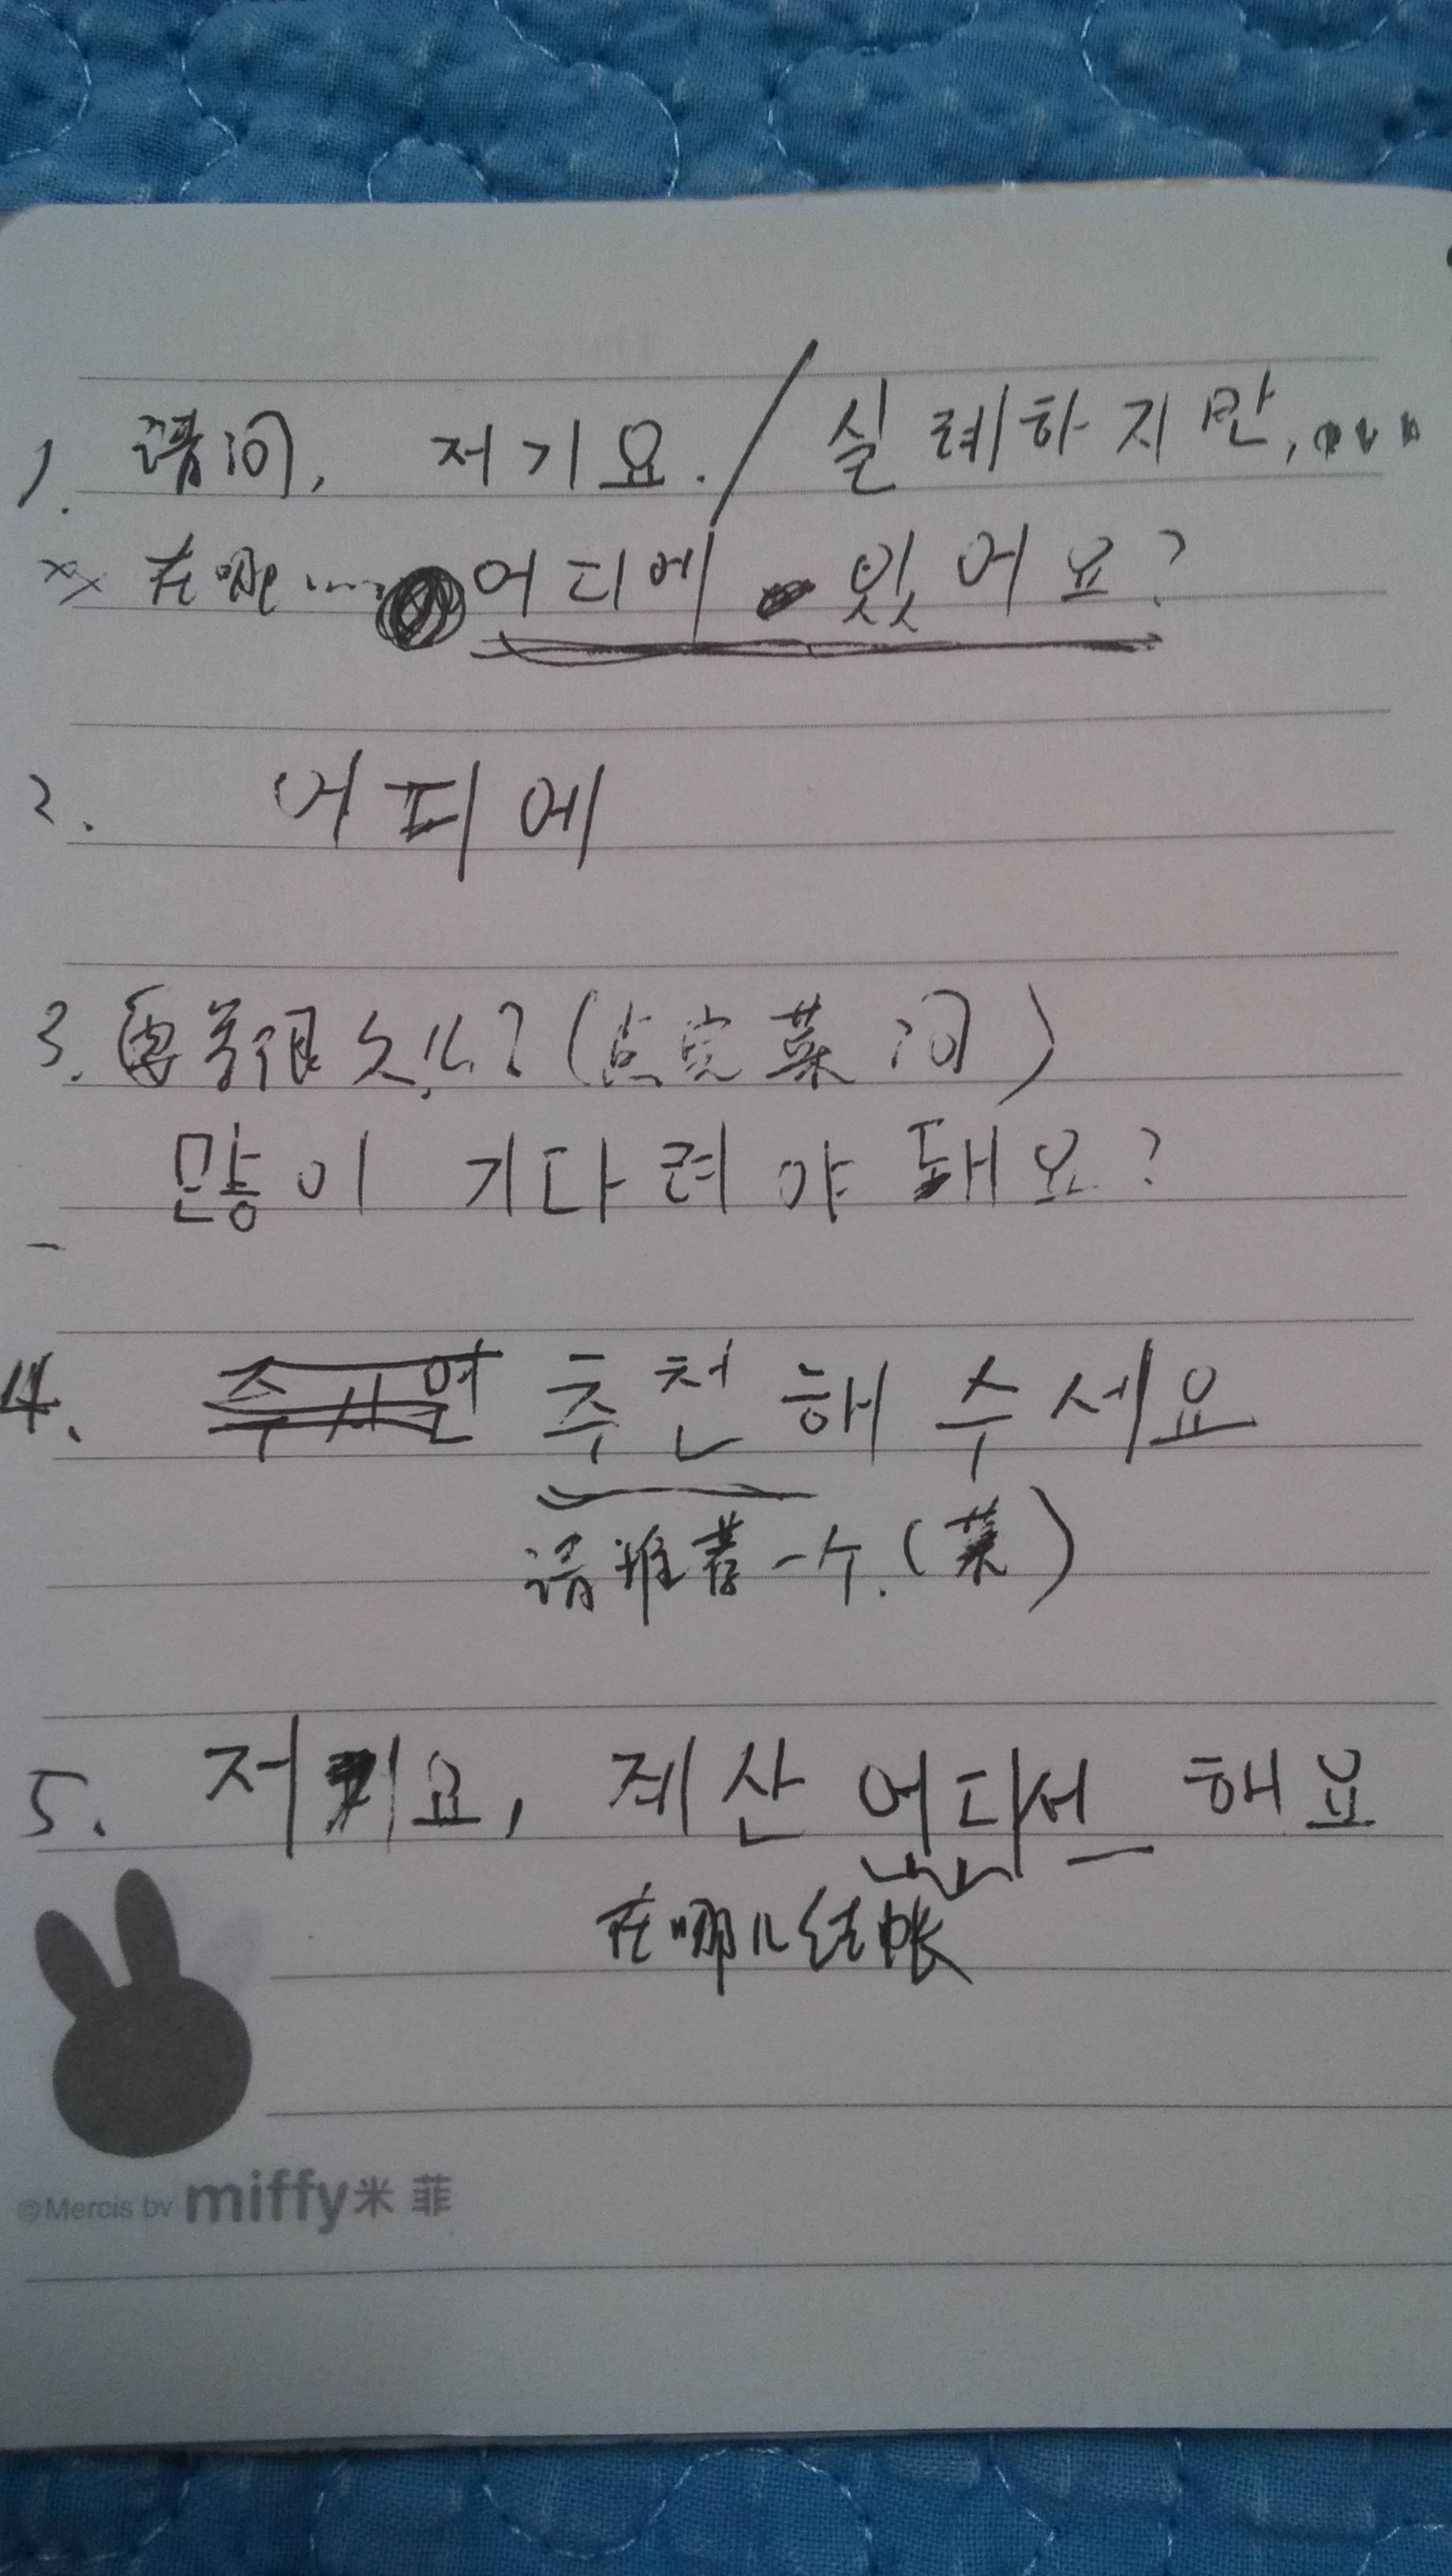 1. 请问, 저기요. / 실례하지만, ....
xx 在哪 ..... 어디에 있어요?
2. 어피에
3. 要等很久么?(点完菜问)
많이 기다려야 돼요?
4. 추천해 수세요
请推荐一个.(菜)
5. 저기요, 계산 어디서 해요
在哪儿结帐
©Mercis bv miffy米菲